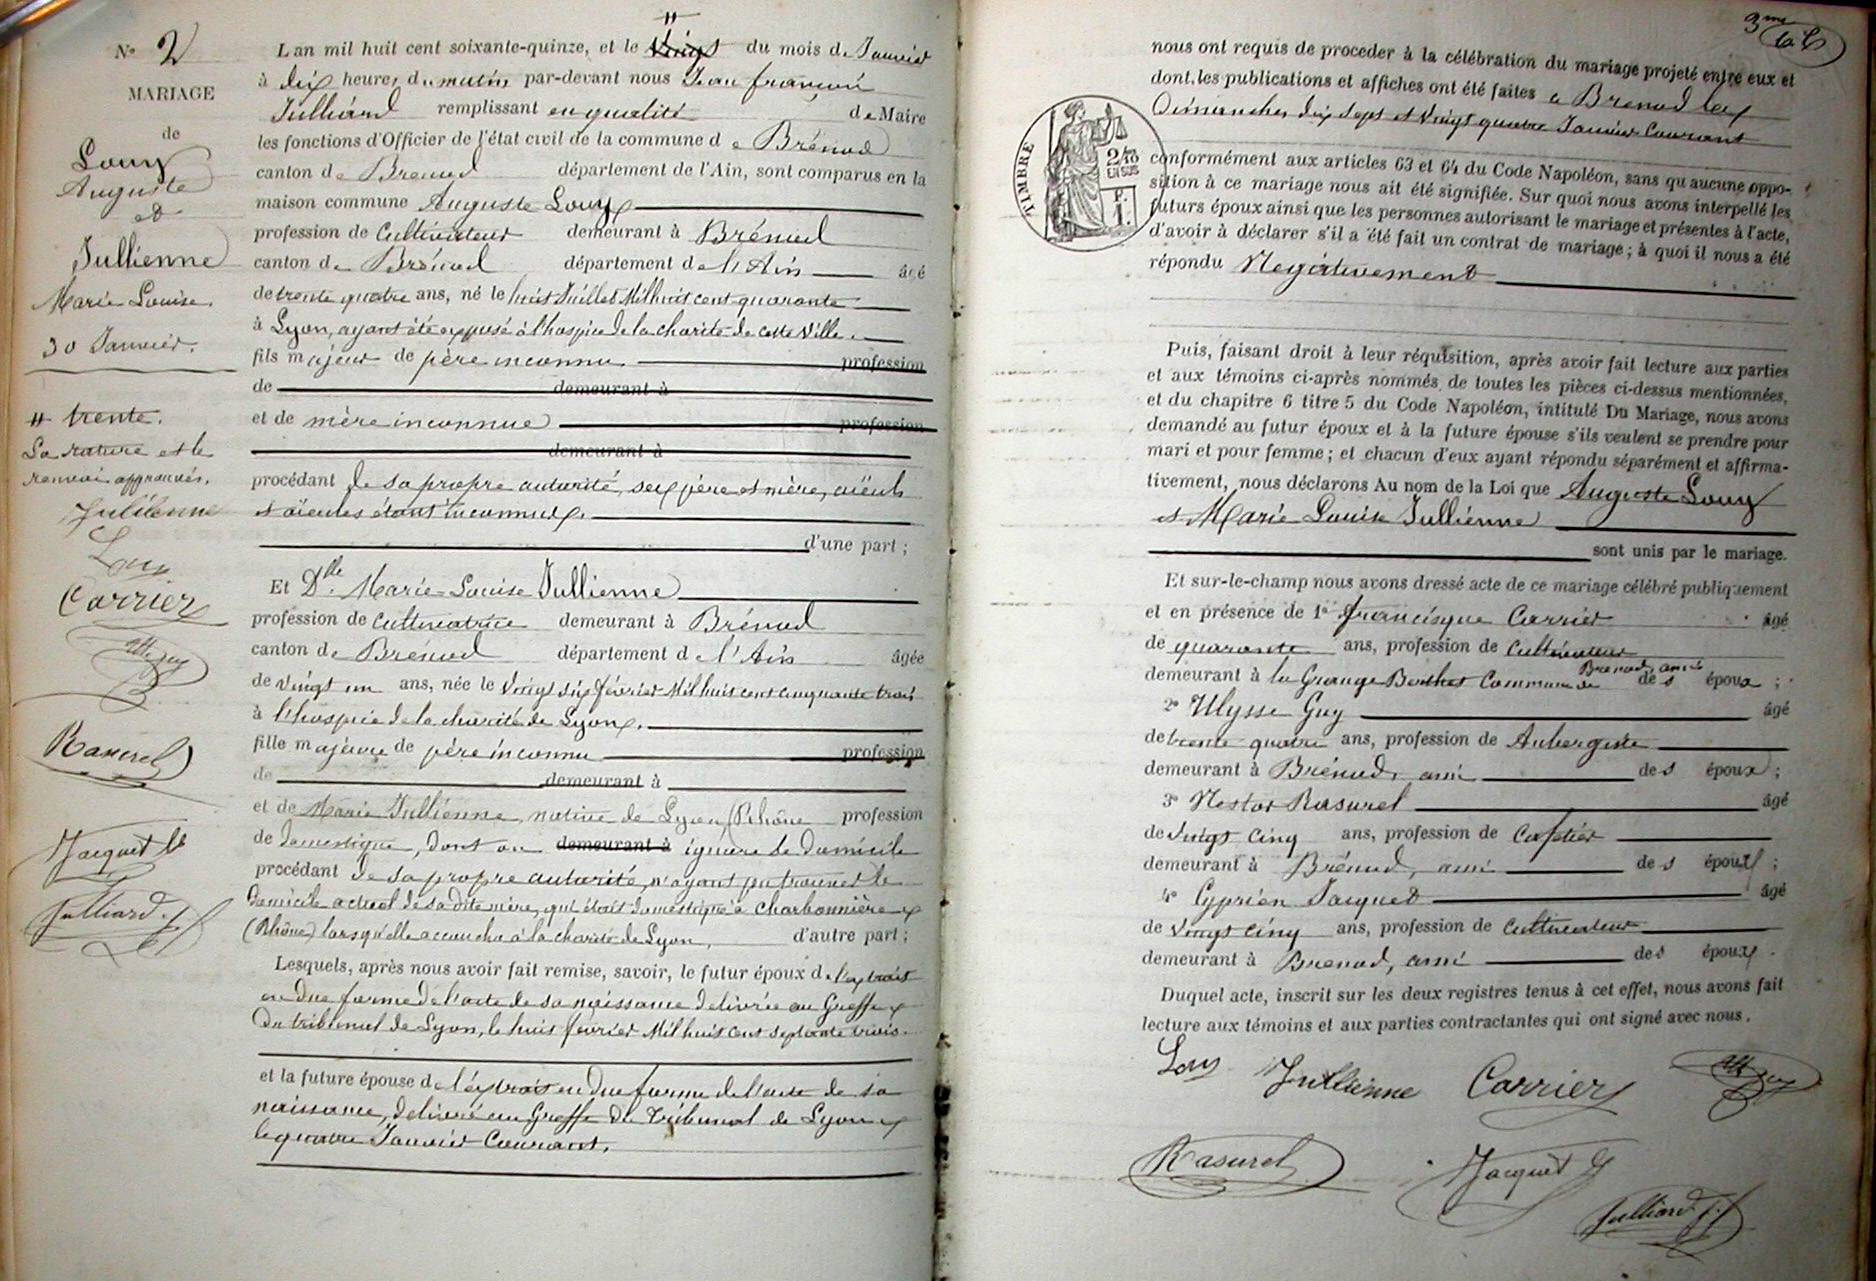 N° 2
MARIAGE
de
Louy
Auguste
et
Jullienne
Marie Louise.
30 Janvier.
# trente.
La rature et le
renvoi approuvés.
Jullienne
Louy
Carrier
Rasurel
Jacquet
Julliard
L'an mil huit cent soixante-quinze, et le vingt # du mois de Janvier
à dix heures du matin par-devant nous Jean françois
Julliard remplissant en qualité de Maire
les fonctions d'Officier de l'état civil de la commune de Brénod
canton de Brenod département de l'Ain, sont comparus en la
maison commune Auguste Louy
profession de Cultivateur demeurant à Brénod
canton de Brénod département de l'Ain âgé
de trente quatre ans, né le huit Juillet Mil huit cent quarante
à Lyon, ayant été exposé à l'hospice de la charité de cette Ville.
fils majeur de père inconnu profession
de demeurant à
et de mère inconnue profession
demeurant à
procédant de sa propre autorité, ses père et mère, aïeuls
et aïeules étant inconnus.
d'une part ;
Et Dlle Marie Louise Jullienne
profession de Cultivatrice demeurant à Brénod
canton de Brénod département de l'Ain âgée
de vingt un ans, née le Vingt six février Mil huit cent cinquante trois
à l'hospice de la charité de Lyon.
fille majeure de père inconnu profession
de demeurant à
et de Marie Jullienne, native de Lyon (Rhône profession
de domestique, dont on demeurant à ignore le domicile
procédant de sa propre autorité, n'ayant pu trouver le
domicile actuel de sa dite mère, qui était domestique à Charbonnière
(Rhône) lorsqu'elle accoucha à la charité de Lyon, d'autre part ;
Lesquels, après nous avoir fait remise, savoir, le futur époux de l'extrait
en due forme de l'acte de sa naissance delivrée au Greffe
du tribunal de Lyon, le huit février Mil huit cent septante trois.
et la future épouse de l'extrait en due forme de l'acte de sa
naissance, delivré au Greffe du Tribunal de Lyon
le quatre Janvier Courant.
3me
nous ont requis de proceder à la célébration du mariage projeté entre eux et
dont les publications et affiches ont été faites à Brenod les
Dimanches dix sept et Vingt quatre Janvier Courant
TIMBRE
2/10
EN SUS
P.
1.
conformément aux articles 63 et 64 du Code Napoléon, sans qu'aucune oppo-
sition à ce mariage nous ait été signifiée. Sur quoi nous avons interpellé les
futurs époux ainsi que les personnes autorisant le mariage et présentes à l'acte,
d'avoir à déclarer s'il a été fait un contrat de mariage ; à quoi il nous a été
répondu Negativement
Puis, faisant droit à leur réquisition, après avoir fait lecture aux parties
et aux témoins ci-après nommés de toutes les pièces ci-dessus mentionnées,
et du chapitre 6 titre 5 du Code Napoléon, intitulé Du Mariage, nous avons
demandé au futur époux et à la future épouse s'ils veulent se prendre pour
mari et pour femme ; et chacun d'eux ayant répondu séparément et affirma-
tivement, nous déclarons Au nom de la Loi que Auguste Louy
et Marie Louise Jullienne
sont unis par le mariage.
Et sur-le-champ nous avons dressé acte de ce mariage célébré publiquement
et en présence de 1° francisque Carrier âgé
de quarante ans, profession de Cultivateur
demeurant à la Grange Berthet Commune de Brenod, ami des époux ;
2° Ulysse Guy âgé
de trente quatre ans, profession de Aubergiste
demeurant à Brénod, ami des époux ;
3° Nestor Rasurel âgé
de vingt cinq ans, profession de Cafetier
demeurant à Brénod, ami des époux ;
4° Cyprien Jacquet âgé
de Vingt cinq ans, profession de Cultivateur
demeurant à Brenod, ami des époux.
Duquel acte, inscrit sur les deux registres tenus à cet effet, nous avons fait
lecture aux témoins et aux parties contractantes qui ont signé avec nous.
Louy Jullienne Carrier
Rasurel Jacquet
Julliard